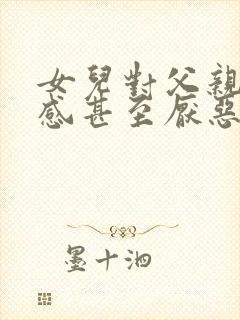 女兒對父親
感甚至厭惡
墨十泗